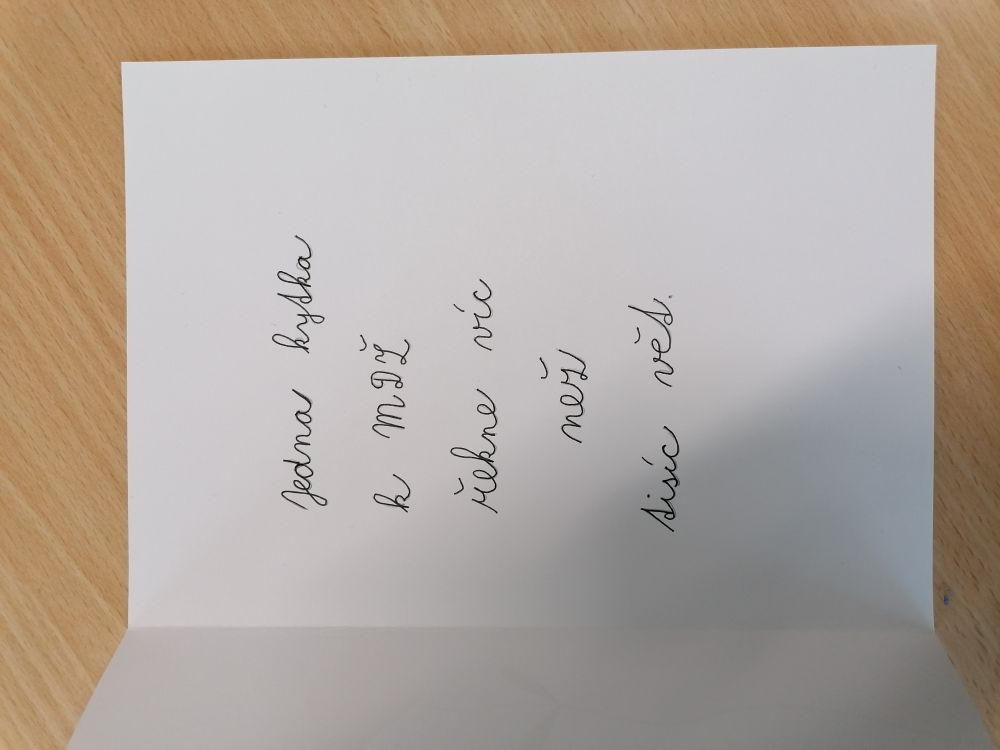 Jedna kytka
k MDŽ
řekne víc
než
tisíc vět.